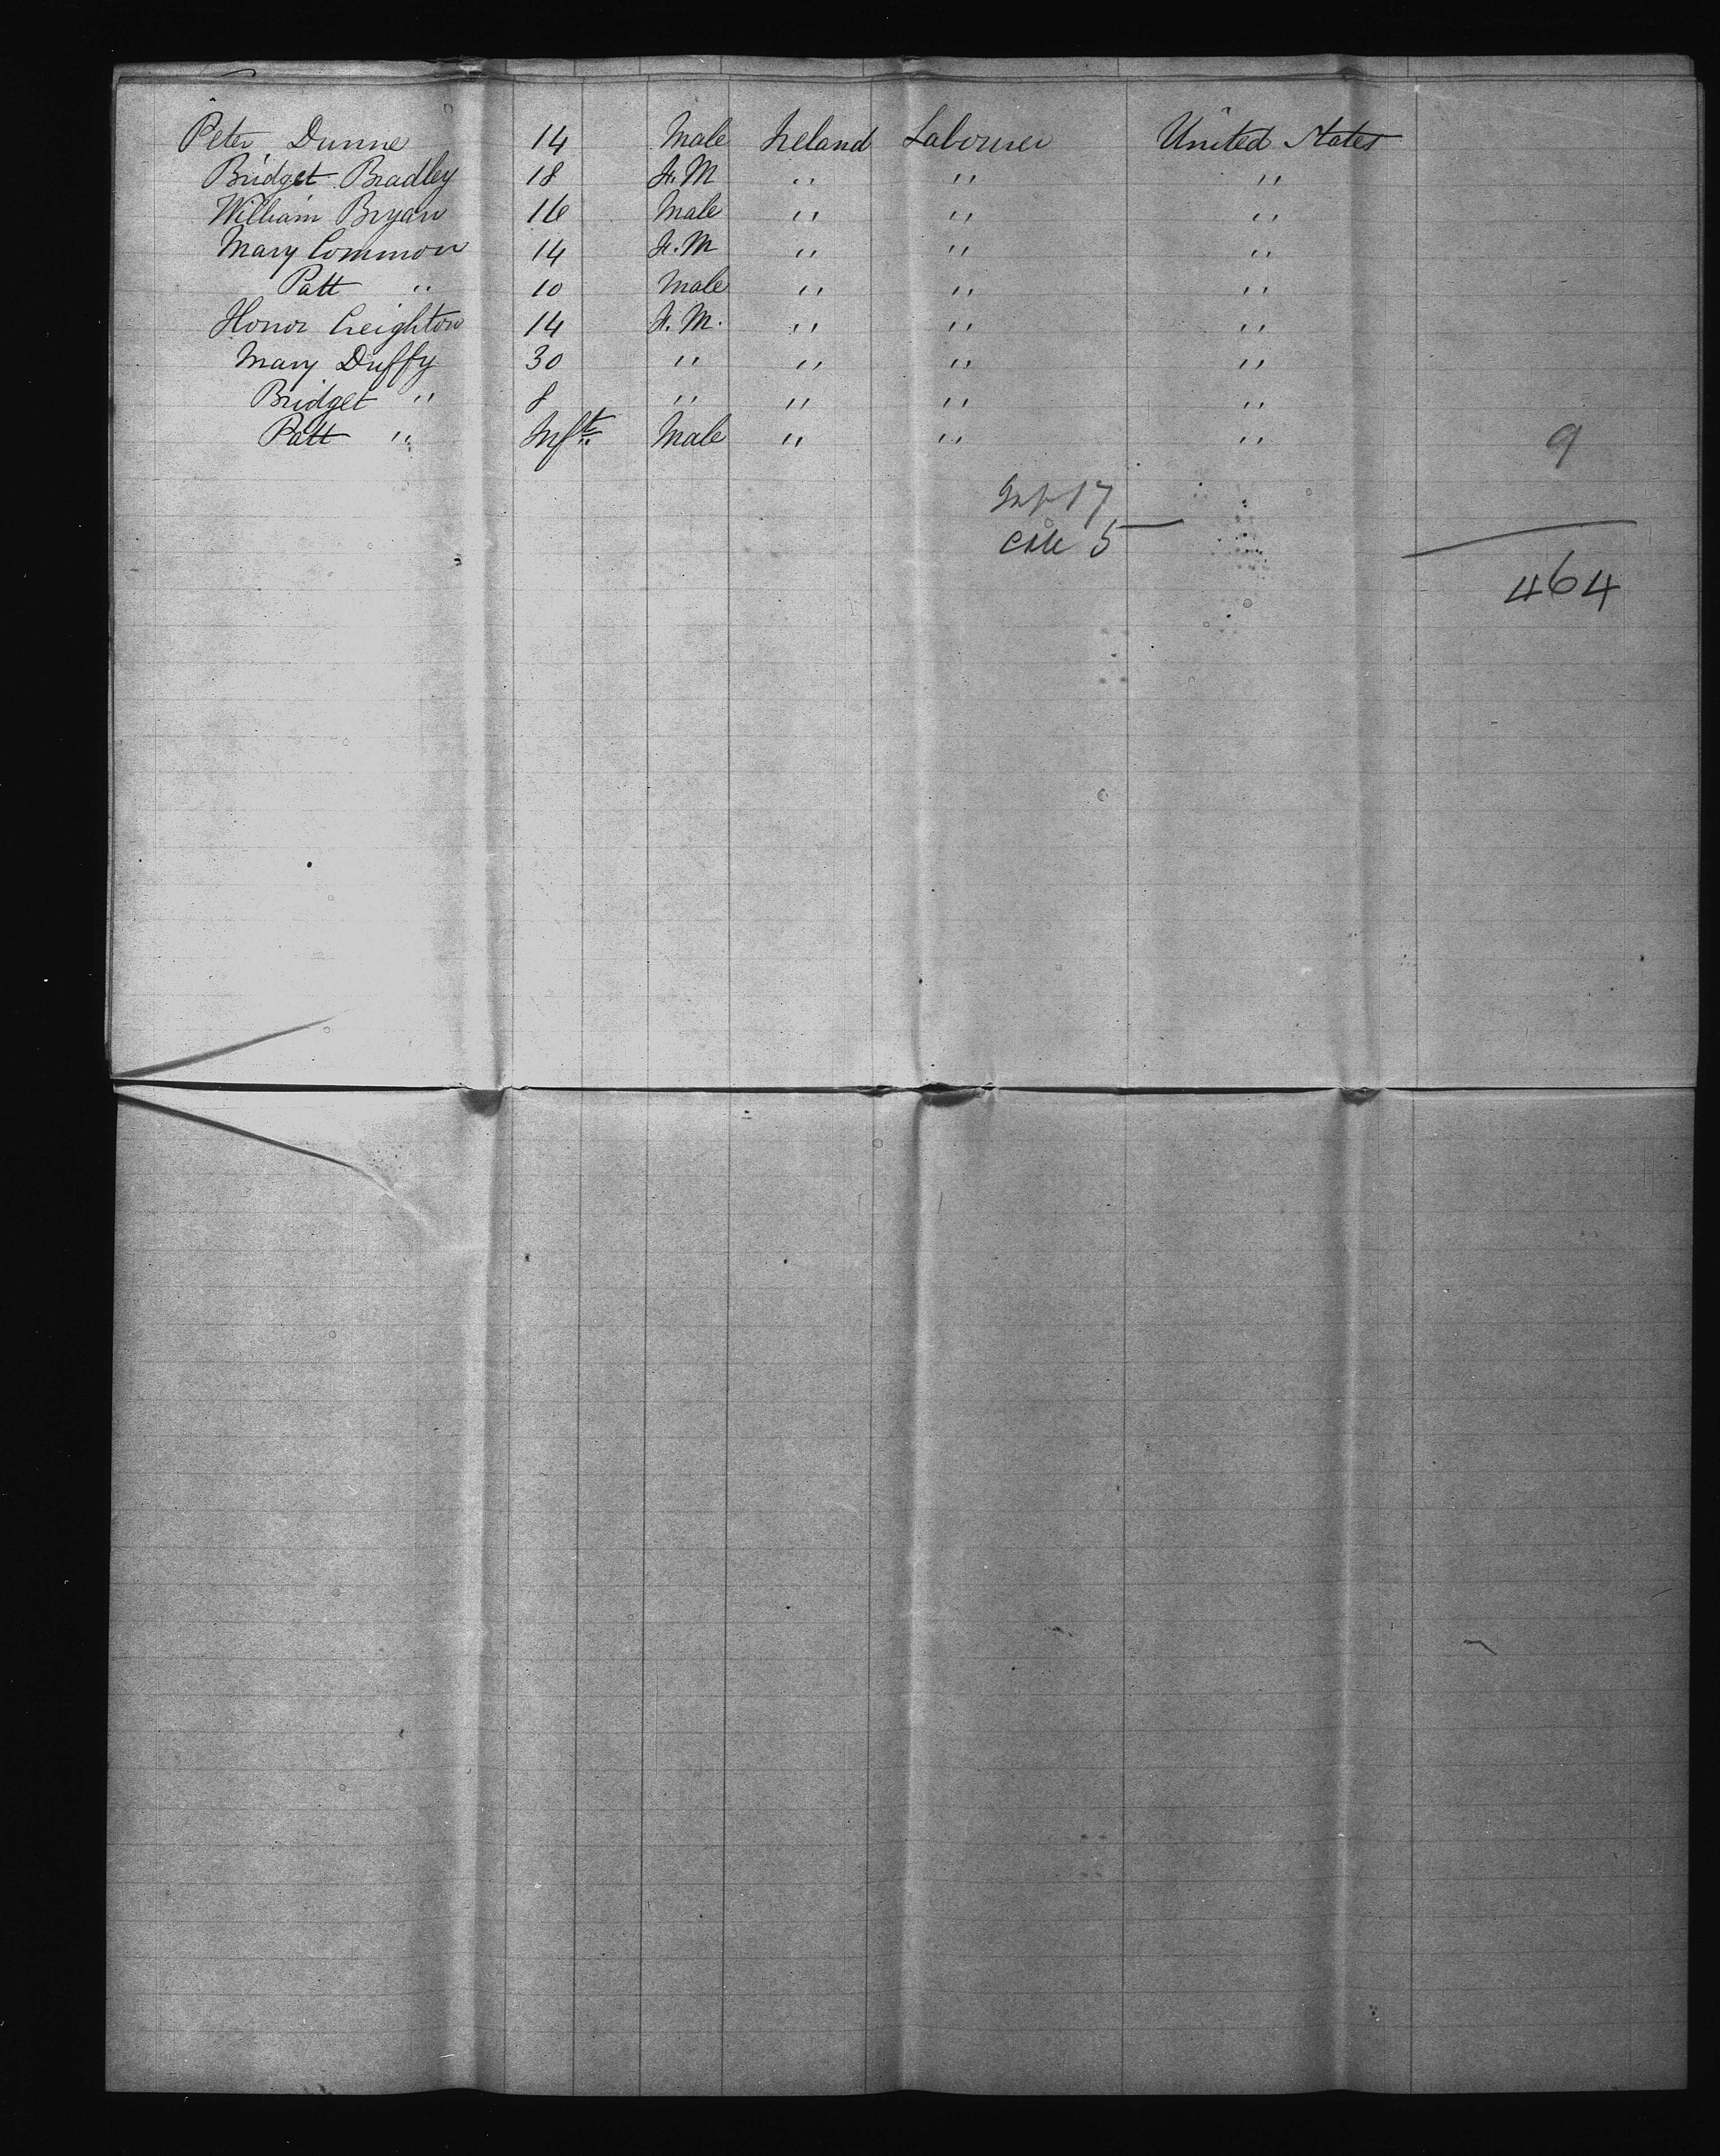 Peter Dunne 14 Male Ireland Labourer United States
Bridget Bradley 18 F.M " " "
William Bryan 16 Male " " "
Mary Common 14 F.M " " "
Patt " 10 Male " " "
Honor Creighton 14 F.M. " " "
Mary Duffy 30 " " " "
Bridget " 8 " " " "
Patt " Inft Male " " " 9
Inf 17
5
464